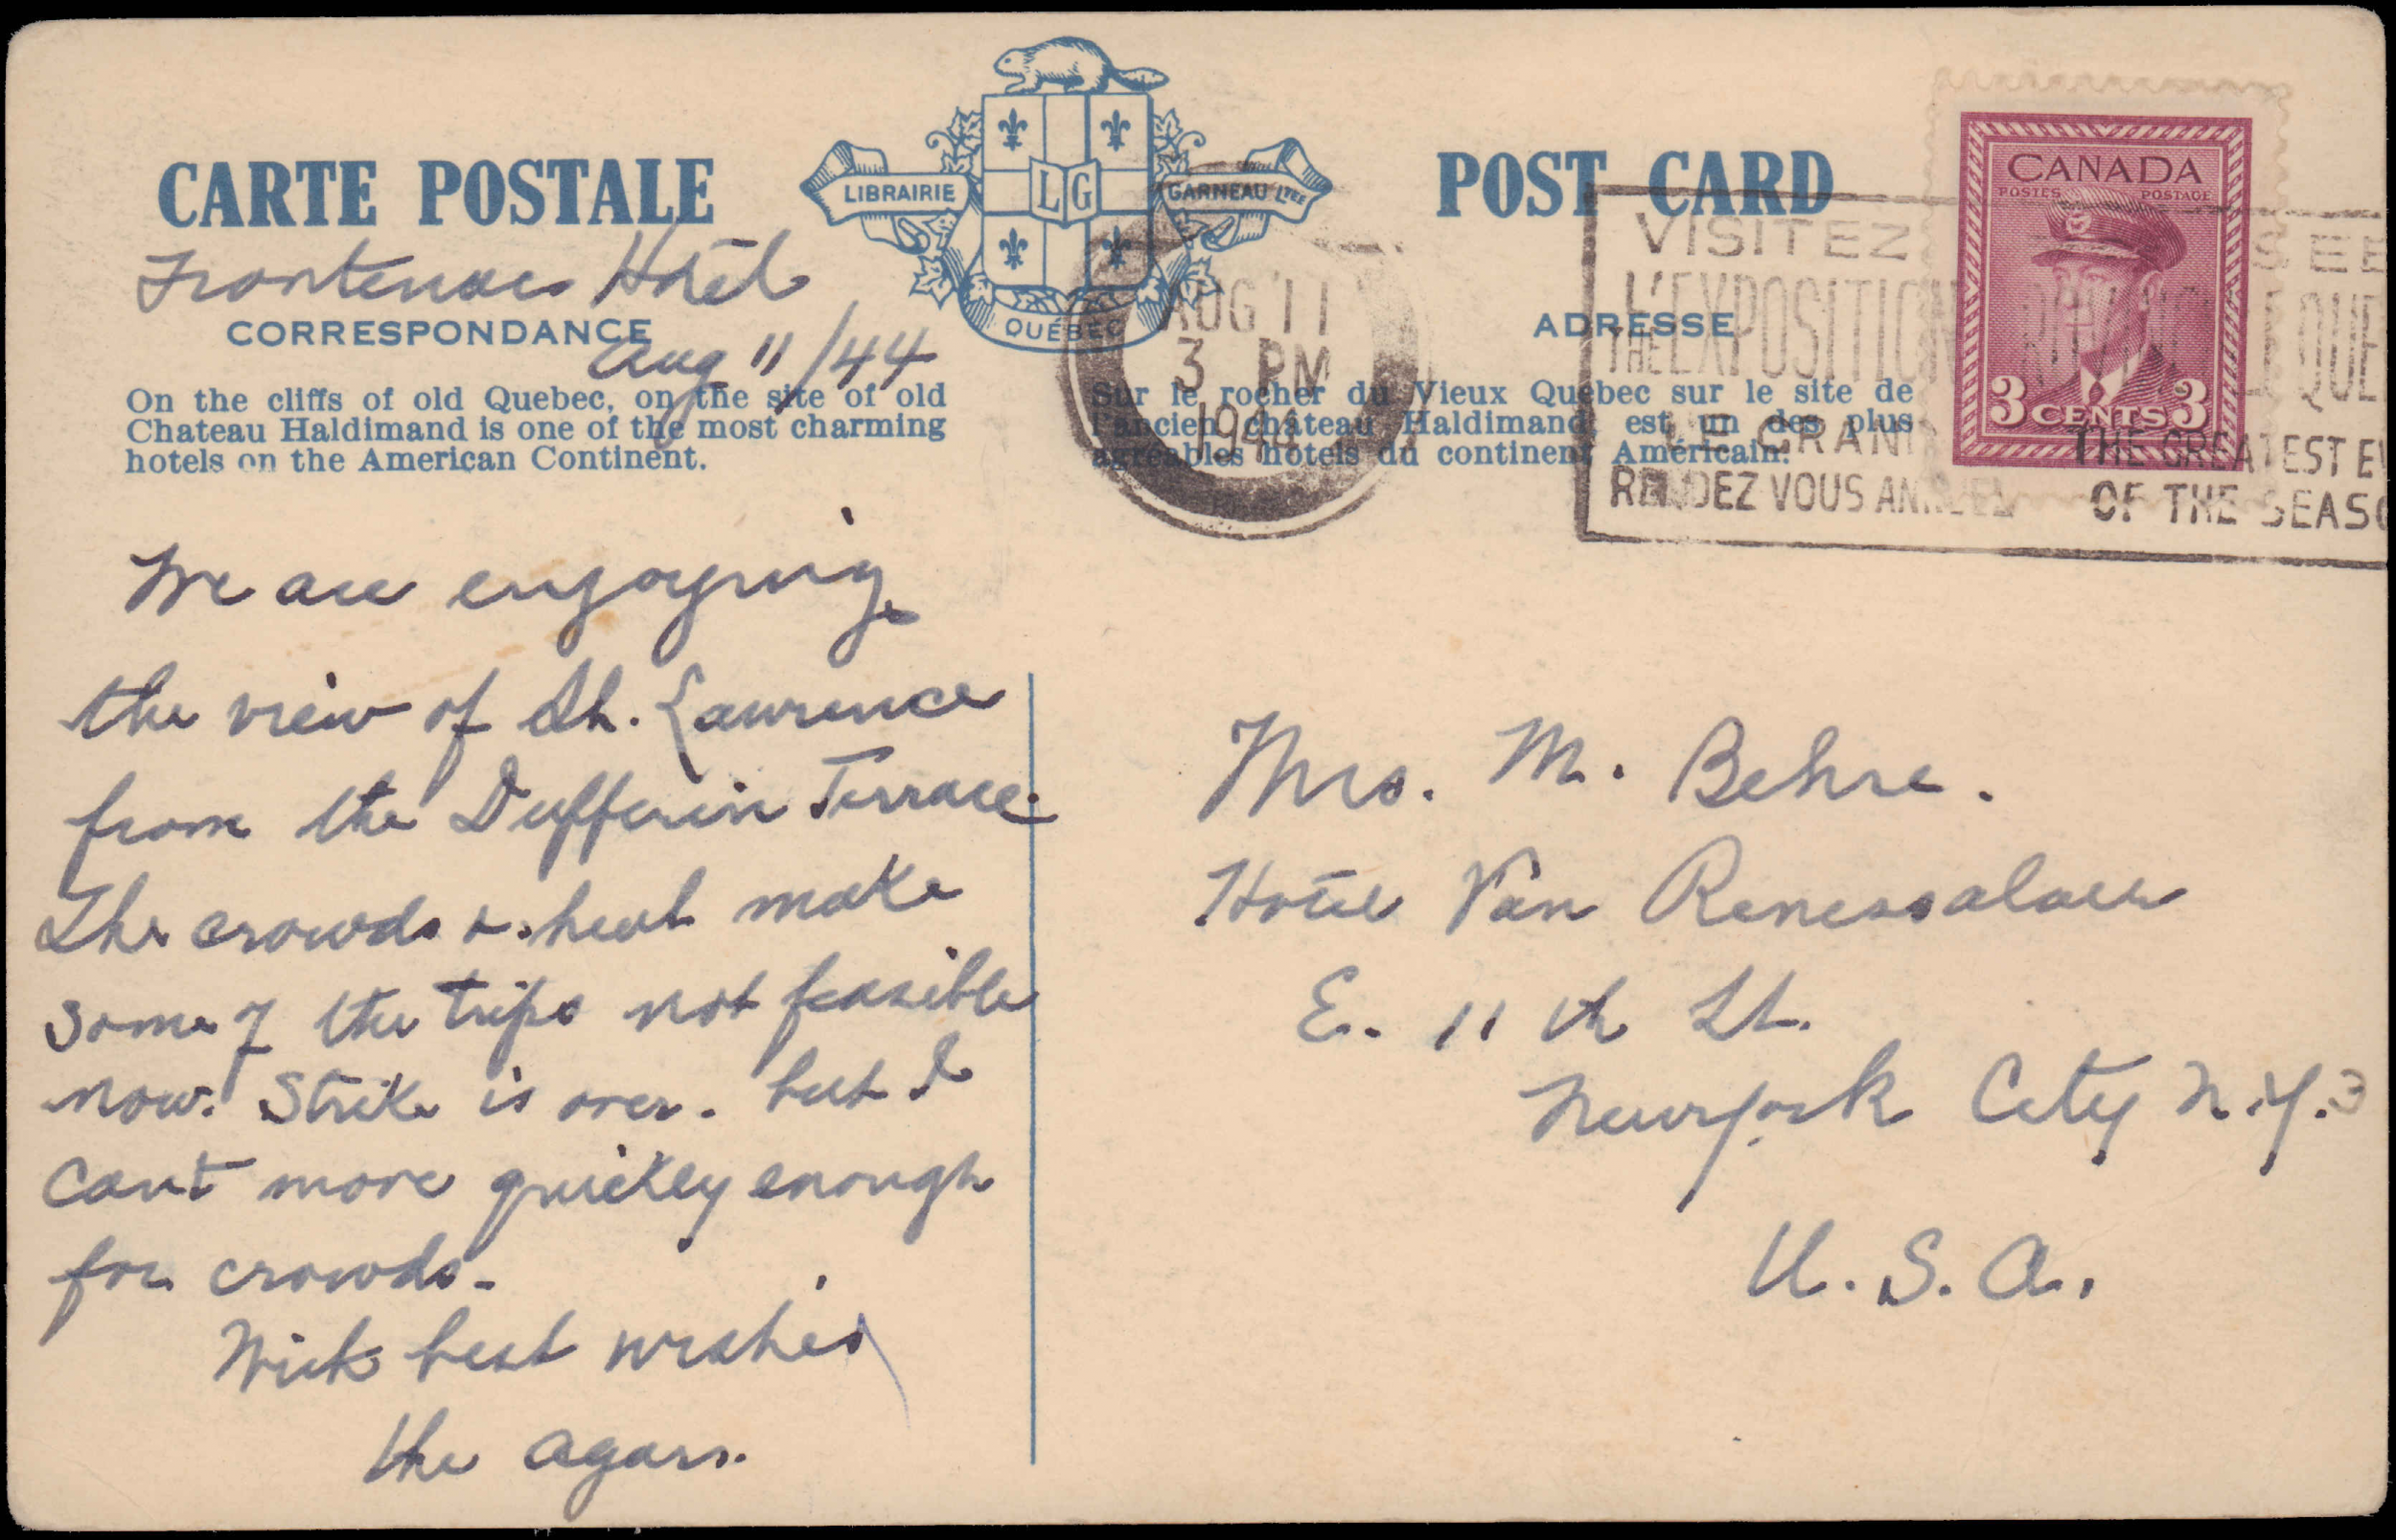 CARTE POSTALE
LIBRAIRIE
LG
GARNEAU LTÉE
QUÉBEC
POST CARD
CANADA
POSTES POSTAGE
3 CENTS 3
Frontenac Hotel
CORRESPONDANCE
Aug 11/44
On the cliffs of old Quebec, on the site of old
Chateau Haldimand is one of the most charming
hotels on the American Continent.
AUG 11
3 PM
1944
ADRESSE
Sur le rocher du Vieux Québec sur le site de
l'ancien château Haldimand est un des plus
agréables hôtels du continent Américain.
VISITEZ
L'EXPOSITION
SEE
THE
QUE
LE GRAND
RENDEZ VOUS ANNUEL
THE GREATEST EV
OF THE SEASO
We are enjoying
the view of St. Lawrence
from the Dufferin Terrace.
The crowds & heat make
some of the trips not feasible
now. Strike is over. but I
cant move quickly enough
for crowds.
With best wishes
the Agars.
Mrs. M. Behre.
Hotel Van Renessalaer
E. 11 th St.
New york City N.Y. 3
U.S.A.